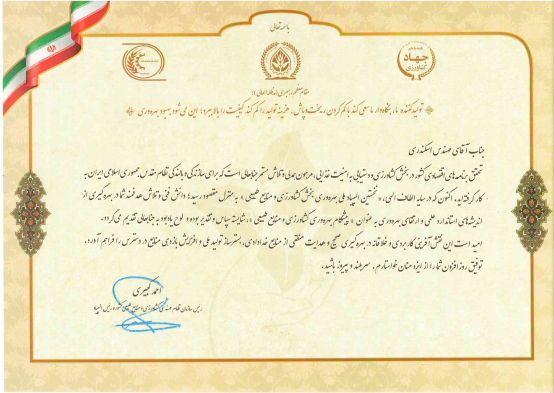 باسمه تعالی
جهاد
کشاورزی
مقام معظم رهبری (مدظله العالی):
تولیدکننده ما، بنگاه‌دار ما سعی کند با کم کردن ریخت و پاش، هزینه تولید را کم کند کیفیت را بالا ببرد؛ این می‌شود بهبود بهره‌وری
جناب آقای مهندس اسکندری
تحقق برنامه‌های اقتصادی کشور در بخش کشاورزی و دستیابی به امنیت غذایی، مرهون همدلی و تلاش مستمر جنابعالی است که برای سازندگی و بالندگی نظام مقدس جمهوری اسلامی ایران به
کار گرفته‌اید، اکنون که در سایه الطاف الهی، « نخستین المپیاد ملی بهره‌وری بخش کشاورزی و منابع طبیعی » به سرمنزل مقصود رسید؛ دانش فنی و تلاش هدفمند شما در بهره‌گیری از
اندیشه‌های استاندارد علمی و ارتقای بهره‌وری به عنوان « پیشگام بهره‌وری کشاورزی و منابع طبیعی »، شایسته سپاس و تقدیر بوده و لوح یادبود به جنابعالی تقدیم می‌گردد.
امید است این نقش آفرینی کاربردی و خلاقانه در بهره‌گیری صحیح و هدایت منطقی از منابع خدادادی، بسترساز تولید ملی و افزایش بازدهی منابع در دسترس را فراهم آورد.
توفیق روزافزون شما را از ایزد منان خواستارم. سربلند و پیروز باشید.
احمد کبیری
رییس سازمان نظام مهندسی کشاورزی و منابع طبیعی کشور و رییس المپیاد